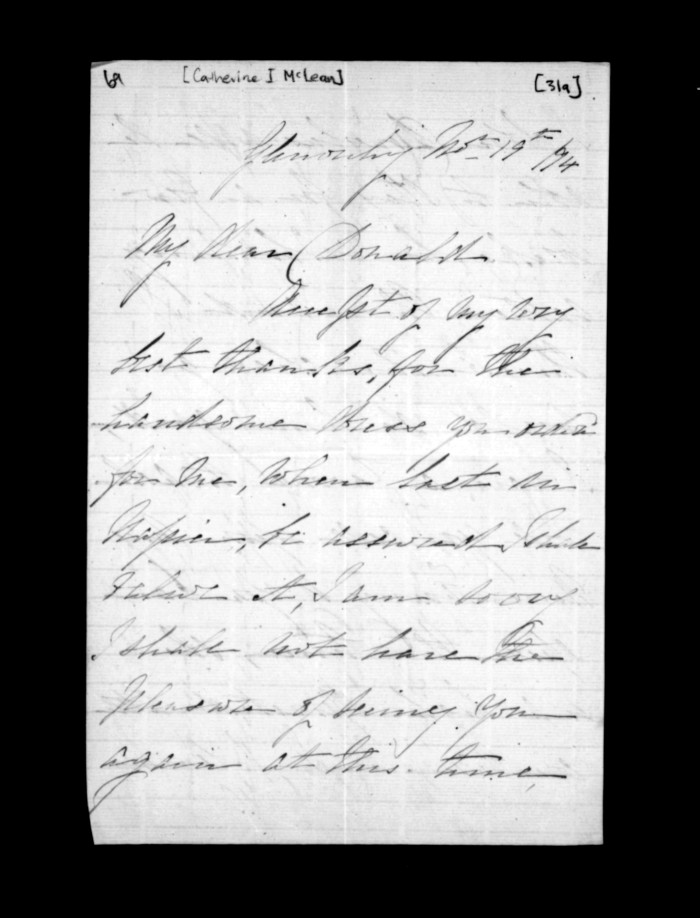 69 [Catherine I McLean] [31a]
Glenorchy Nov 19th /74
My dear Donald
Accept of my very
best thanks, for the
handsome dress you order
for me, when last in
Napier, be assured I shall
value it, I am sorry
I shall not have the
pleasure of seeing you
again at this time,